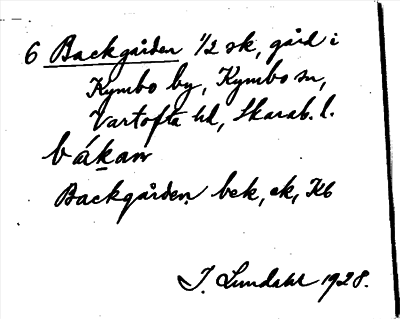 6 Backgården 1/2 sk, gård i
Kymbo by, Kymbo sn,
Vartofta hd, Skarab. l.
bákan
Backgården bek, ek, Kb
I. Lundahl 1928.